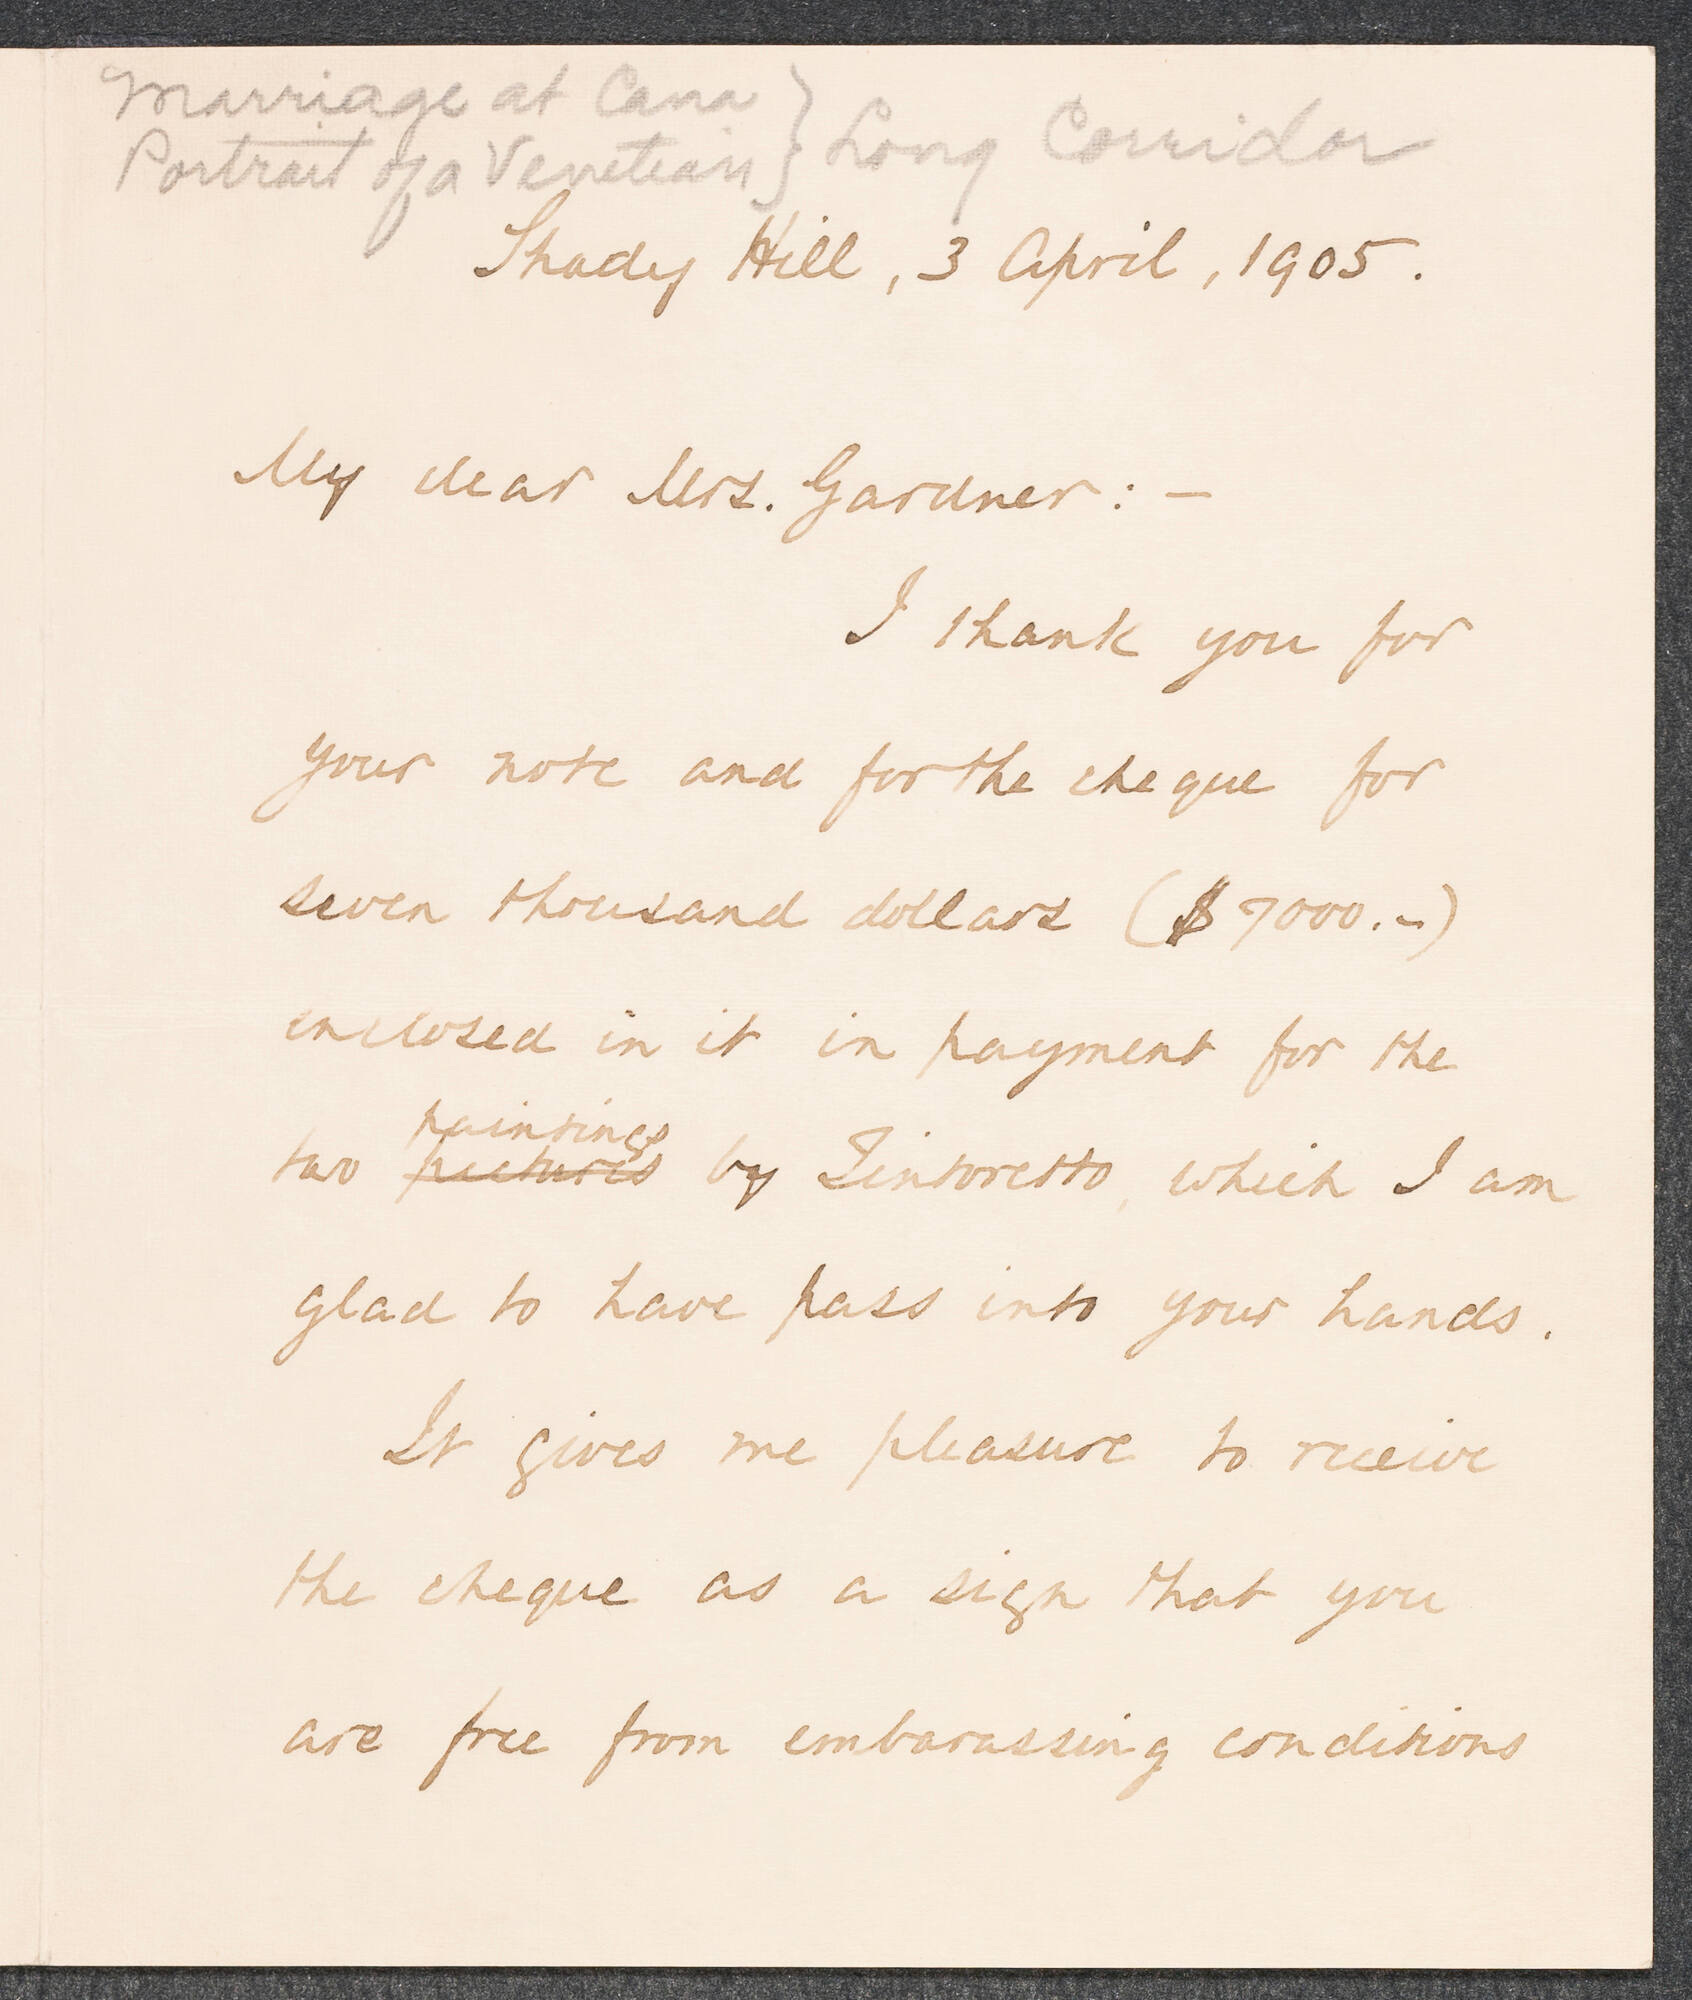 Marriage at Cana } Long Corridor
Portrait of a Venetian
Shady Hill, 3 April, 1905.
My dear Mrs. Gardner: —
I thank you for
your note and for the cheque for
seven thousand dollars ($7000.-)
enclosed in it in payment for the
paintings
two pictures by Tintoretto, which I am
glad to have pass into your hands.
It gives me pleasure to receive
the cheque as a sign that you
are free from embarassing conditions